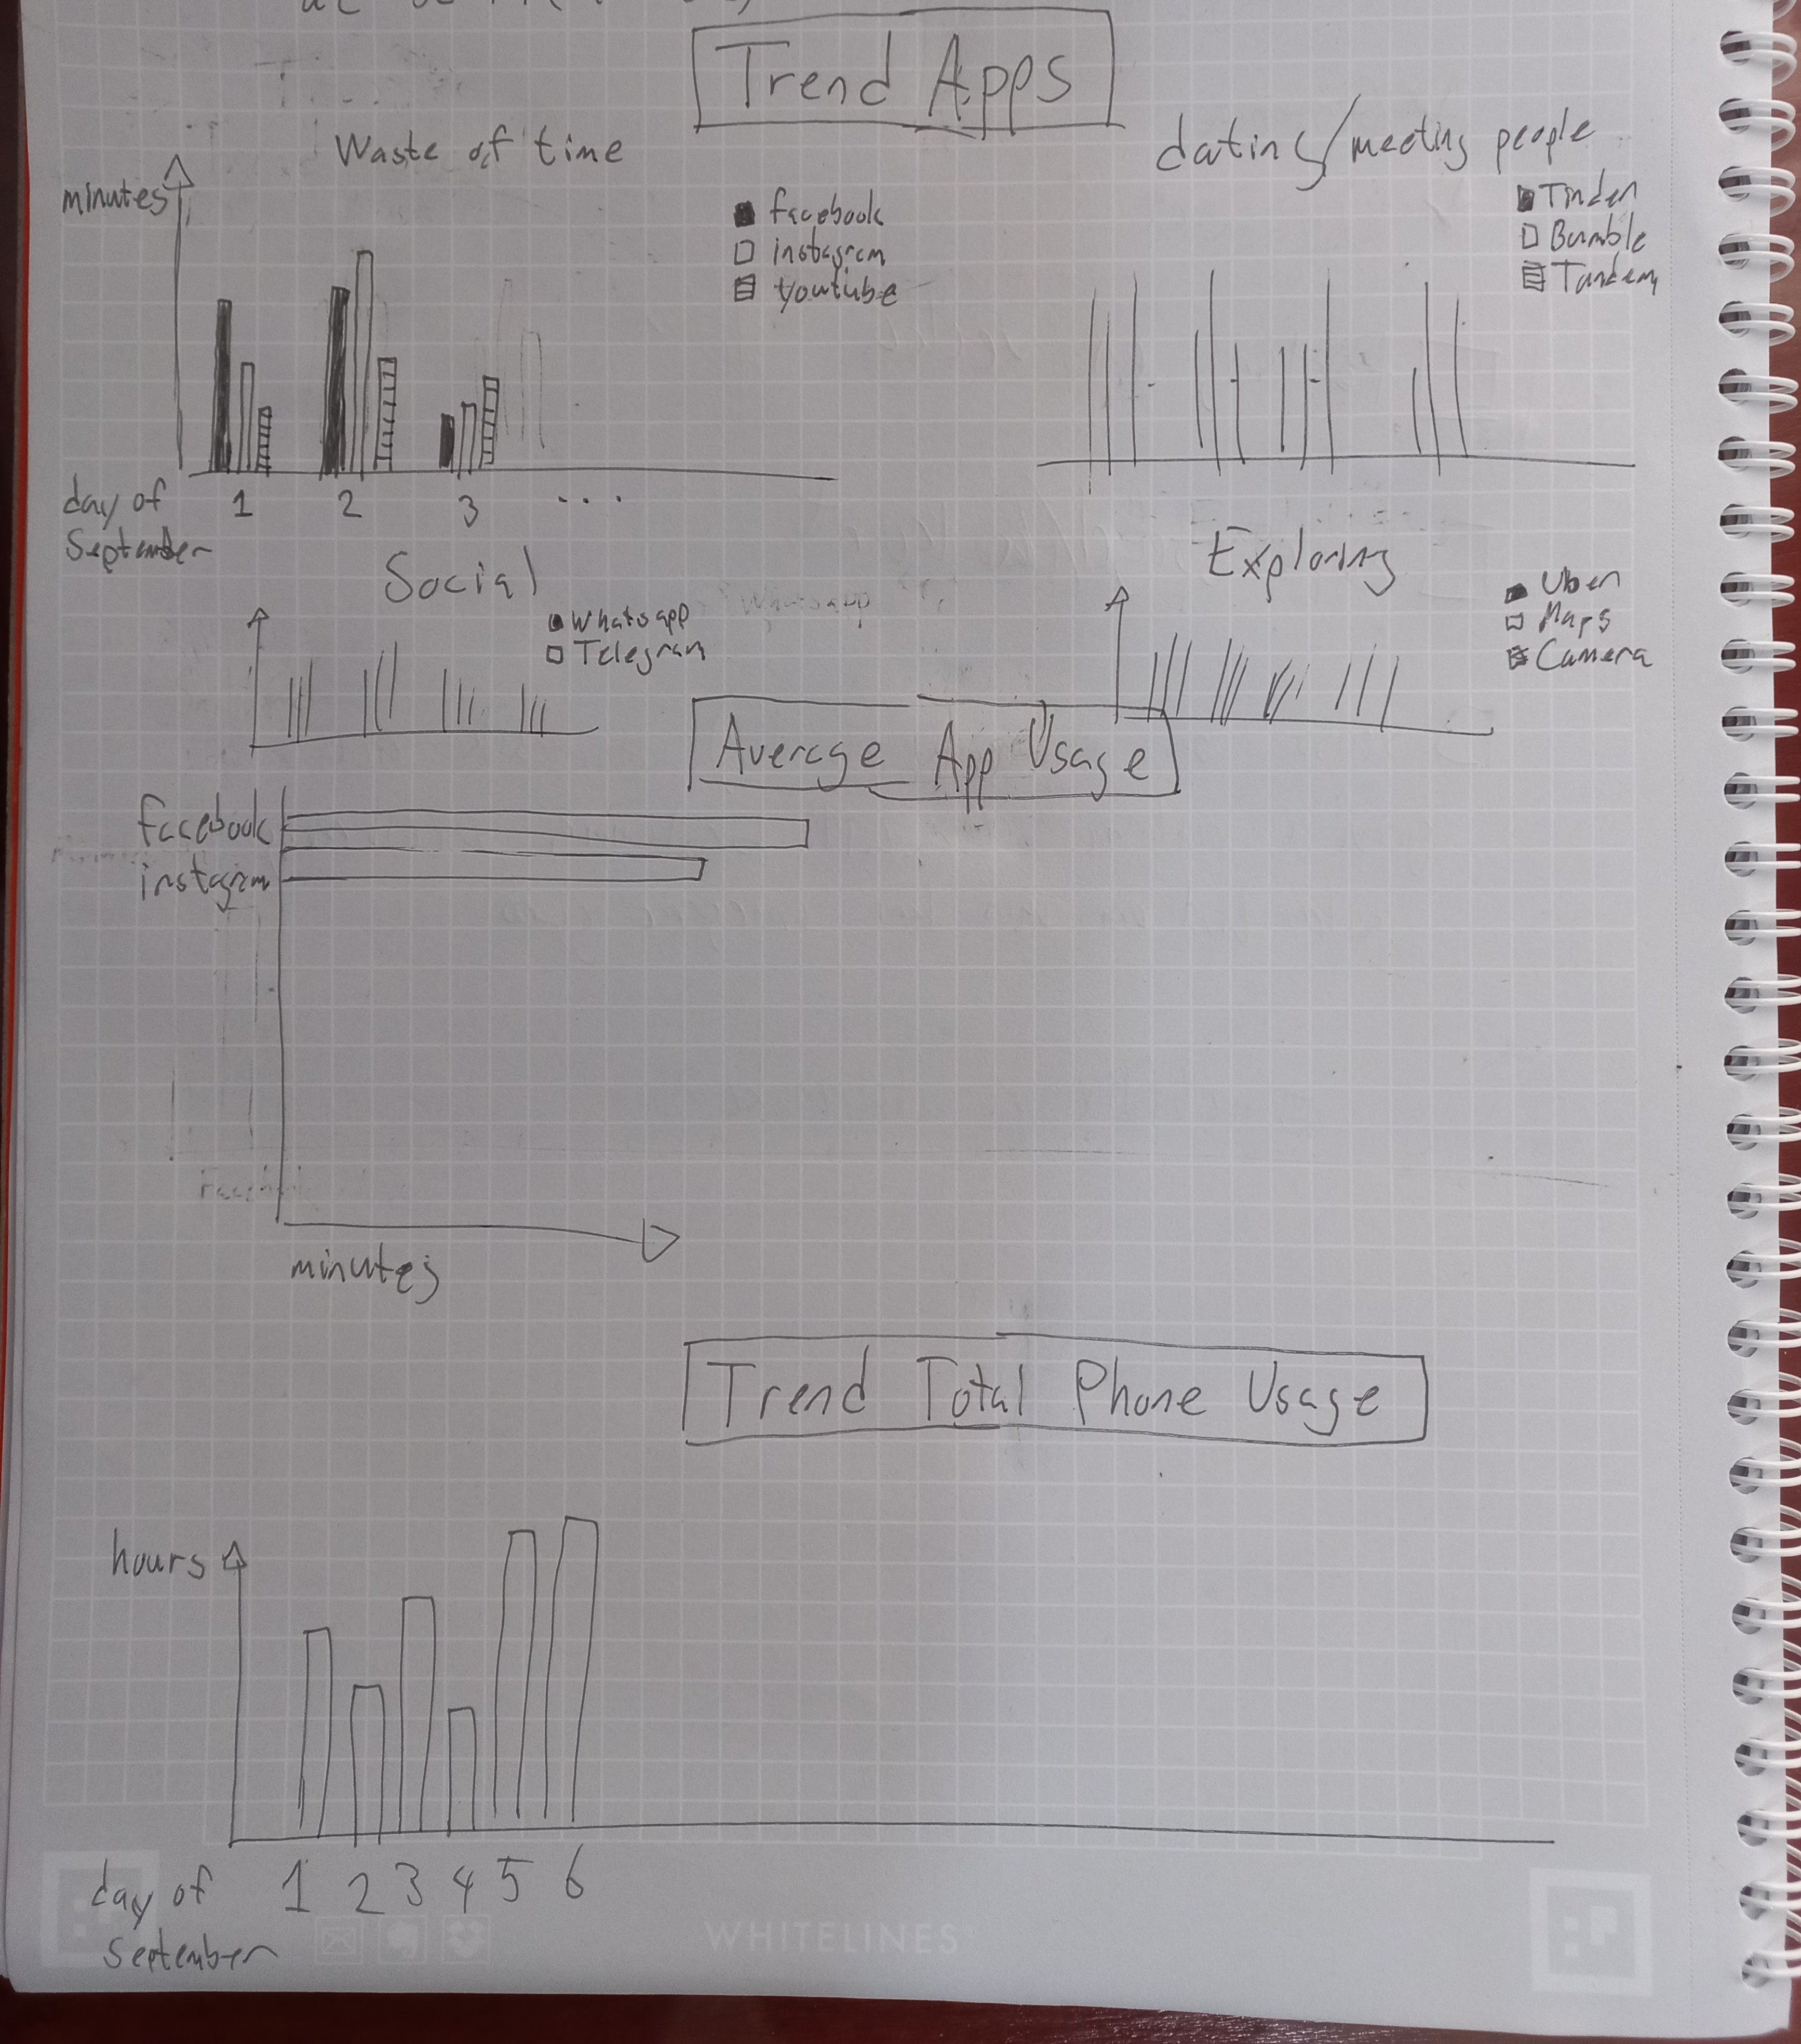 Trend Apps
Waste of time
minutes
facebook
instagram
youtube
day of
September
1 2 3 ...
dating/meeting people
Tinder
Bumble
Tandem
Social
Whatsapp
Telegram
Exploring
Uber
Maps
Camera
Average App Usage
facebook
instagram
minutes
Trend Total Phone Usage
hours
day of
September
1 2 3 4 5 6
WHITELINES